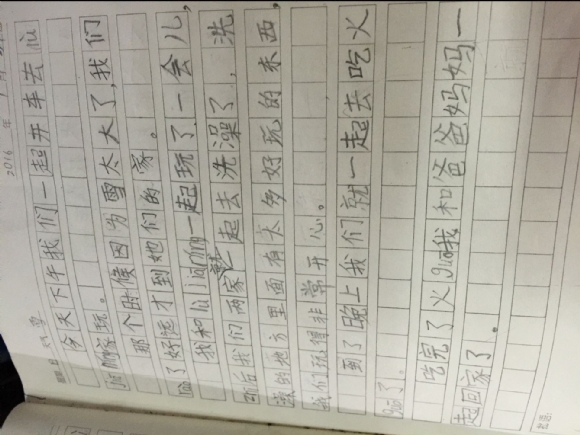 2016 年 1 月
今天下午我们一起开车去liu
家玩。
那个时候因为雪太大了,我们
了好远才到她们的家。
我和liu 一起玩了一会儿,
后我们两家就一起去洗澡了,洗
澡的地方里面有太多好玩的东西,
我们玩得非常开心。
到了晚上我们就一起去吃火
guo了。
吃完了火guo我和爸爸妈妈一
起回家了。